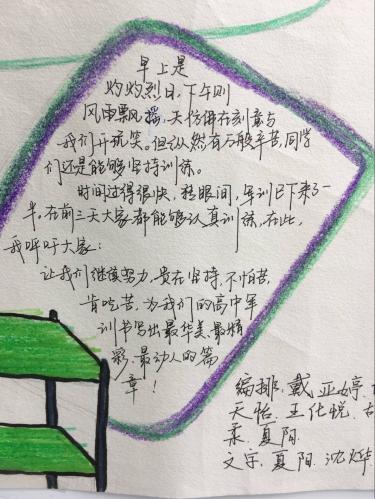 早上是
灼灼烈日,下午则
风雨飘摇,天仿佛在刻意与
我们开玩笑。但纵然有万般辛苦,同学
们还是能够坚持训练。
时间过得很快,转眼间,军训已下来了一
半,在前三天大家都能够认真训练,在此,
我呼吁大家:
让我们继续努力,贵在坚持,不怕苦,
肯吃苦,为我们的高中军
训书写出最华美、最精
彩、最动人的篇
章!
编排:戴亚婷
天怡、王仕悦、
柔、夏阳
文字:夏阳、沈烨